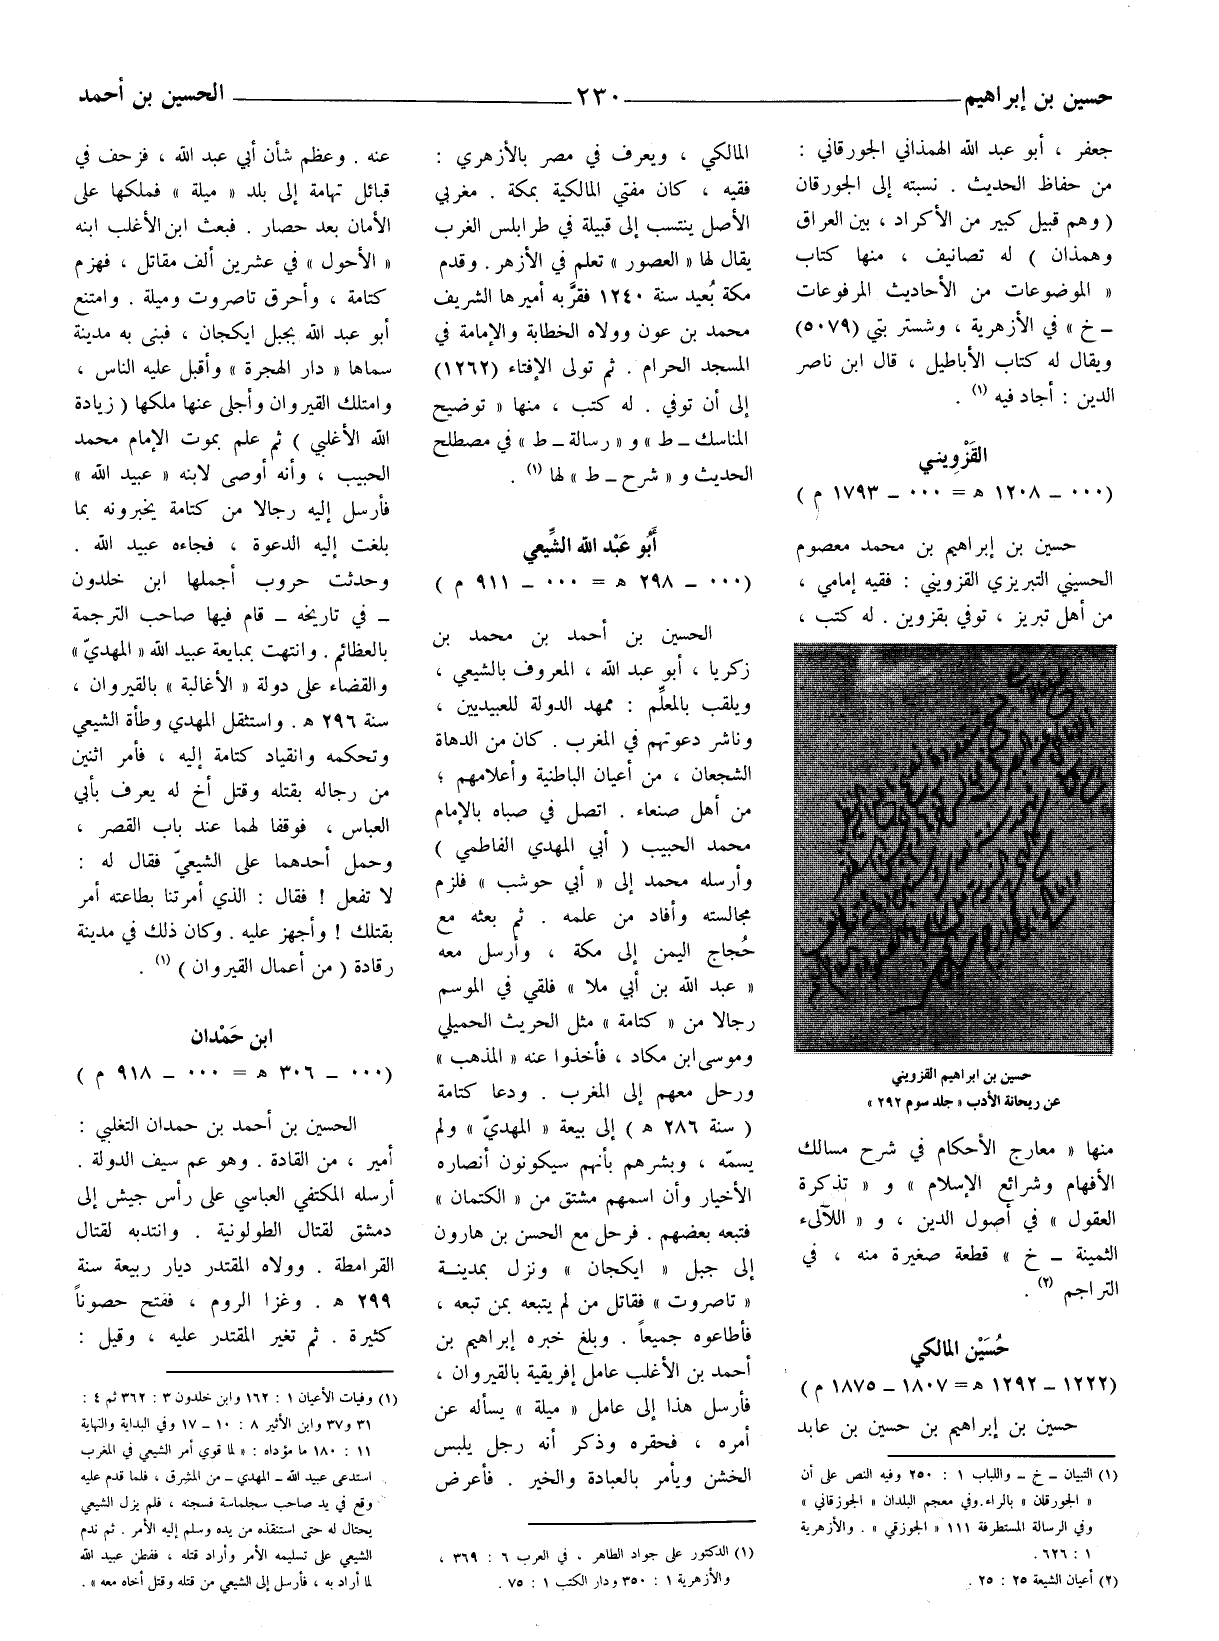 حسين بن إبراهيم ٢٣٠ الحسين بن أحمد
جعفر ، أبو عبد الله الهمذاني الجورقاني :
من حفاظ الحديث . نسبته إلى الجورقان
( وهم قبيل كبير من الأكراد ، بين العراق
وهمذان ) له تصانيف ، منها كتاب
« الموضوعات من الأحاديث المرفوعات
ـ خ » في الأزهرية ، وشستر بتي (٥٠٧٩)
ويقال له كتاب الأباطيل ، قال ابن ناصر
الدين : أجاد فيه (١) .
القَزْويني
(٠٠٠ ـ ١٢٠٨ ه = ٠٠٠ ـ ١٧٩٣ م )
حسين بن إبراهيم بن محمد معصوم
الحسيني التبريزي القزويني : فقيه إمامي ،
من أهل تبريز ، توفي بقزوين . له كتب ،
حسين بن ابراهيم القزويني
عن ريحانة الأدب « جلد سوم ٢٩٢ »
منها « معارج الأحكام في شرح مسالك
الأفهام وشرائع الإسلام » و « تذكرة
العقول » في أصول الدين ، و « اللآلىء
الثمينة ـ خ » قطعة صغيرة منه ، في
التراجم (٢) .
حُسَيْن المالكي
(١٢٢٢ ـ ١٢٩٢ ه = ١٨٠٧ ـ ١٨٧٥ م )
حسين بن إبراهيم بن حسين بن عابد
(١) التبيان ـ خ ـ واللباب ١ : ٢٥٠ وفيه النص على أن
« الجورقان » بالراء.وفي معجم البلدان « الجوزقاني »
وفي الرسالة المستطرفة ١١١ « الجوزقي » . والأزهرية
١ : ٦٢٦ .
(٢) أعيان الشيعة ٢٥ : ٢٥ .
المالكي ، ويعرف في مصر بالأزهري :
فقيه ، كان مفتي المالكية بمكة . مغربي
الأصل ينتسب إلى قبيلة في طرابلس الغرب
يقال لها « العصور » تعلم في الأزهر . وقدم
مكة بُعيد سنة ١٢٤٠ فقرَّبه أميرها الشريف
محمد بن عون وولاه الخطابة والإمامة في
المسجد الحرام . ثم تولى الإفتاء (١٢٦٢)
إلى أن توفي . له كتب ، منها « توضيح
المناسك ـ ط » و « رسالة ـ ط » في مصطلح
الحديث و « شرح ـ ط » لها (١) .
أَبُو عَبْد الله الشِّيعي
(٠٠٠ ـ ٢٩٨ ه = ٠٠٠ ـ ٩١١ م )
الحسين بن أحمد بن محمد بن
زكريا ، أبو عبد الله ، المعروف بالشيعي ،
ويلقب بالمعلِّم : ممهد الدولة للعبيديين ،
وناشر دعوتهم في المغرب . كان من الدهاة
الشجعان ، من أعيان الباطنية وأعلامهم ؛
من أهل صنعاء . اتصل في صباه بالإمام
محمد الحبيب ( أبي المهدي الفاطمي )
وأرسله محمد إلى « أبي حوشب » فلزم
مجالسته وأفاد من علمه . ثم بعثه مع
حُجاج اليمن إلى مكة ، وأرسل معه
« عبد الله بن أبي ملا » فلقي في الموسم
رجالا من « كتامة » مثل الحريث الحميلي
وموسى ابن مكاد ، فأخذوا عنه « المذهب »
ورحل معهم إلى المغرب . ودعا كتامة
( سنة ٢٨٦ ه ) إلى بيعة « المهديّ » ولم
يسمّه ، وبشرهم بأنهم سيكونون أنصاره
الأخيار وأن اسمهم مشتق من « الكتمان »
فتبعه بعضهم . فرحل مع الحسن بن هارون
إلى جبل « ايكجان » ونزل بمدينة
« تاصروت » فقاتل من لم يتبعه بمن تبعه ،
فأطاعوه جميعاً . وبلغ خبره إبراهيم بن
أحمد بن الأغلب عامل إفريقية بالقيروان ،
فأرسل هذا إلى عامل « ميلة » يسأله عن
أمره ، فحقره وذكر أنه رجل يلبس
الخشن ويأمر بالعبادة والخير . فأعرض
(١) الدكتور علي جواد الطاهر ، في العرب ٦ : ٣٦٩ ،
والأزهرية ١ : ٣٥٠ ودار الكتب ١ : ٧٥ .
عنه . وعظم شأن أبي عبد الله ، فزحف في
قبائل تهامة إلى بلد « ميلة » فملكها على
الأمان بعد حصار . فبعث ابن الأغلب ابنه
« الأحول » في عشرين ألف مقاتل ، فهزم
كتامة ، وأحرق تاصروت وميلة . وامتنع
أبو عبد الله بجبل ايكجان ، فبنى به مدينة
سماها « دار الهجرة » وأقبل عليه الناس ،
وامتلك القيروان وأجلى عنها ملكها ( زيادة
الله الأغلبي ) ثم علم بموت الإمام محمد
الحبيب ، وأنه أوصى لابنه « عبيد الله »
فأرسل إليه رجالا من كتامة يخبرونه بما
بلغت إليه الدعوة ، فجاءه عبيد الله .
وحدثت حروب أجملها ابن خلدون
ـ في تاريخه ـ قام فيها صاحب الترجمة
بالعظائم . وانتهت بمبايعة عبيد الله « المهديّ »
والقضاء على دولة « الأغالبة » بالقيروان ،
سنة ٢٩٦ ه . واستثقل المهدي وطأة الشيعي
وتحكمه وانقياد كتامة إليه ، فأمر اثنين
من رجاله بقتله وقتل أخ له يعرف بأبي
العباس ، فوقفا لهما عند باب القصر ،
وحمل أحدهما على الشيعيّ فقال له :
لا تفعل ! فقال : الذي أمرتنا بطاعته أمر
بقتلك ! وأجهز عليه . وكان ذلك في مدينة
رقادة ( من أعمال القيروان ) (١) .
ابن حَمْدان
(٠٠٠ ـ ٣٠٦ ه = ٠٠٠ ـ ٩١٨ م )
الحسين بن أحمد بن حمدان التغلبي :
أمير ، من القادة . وهو عم سيف الدولة .
أرسله المكتفي العباسي على رأس جيش إلى
دمشق لقتال الطولونية . وانتدبه لقتال
القرامطة . وولاه المقتدر ديار ربيعة سنة
٢٩٩ ه . وغزا الروم ، ففتح حصوناً
كثيرة . ثم تغير المقتدر عليه ، وقيل :
(١) وفيات الأعيان ١ : ١٦٢ وابن خلدون ٣ : ٣٦٢ ثم ٤ :
٣١ و٣٧ وابن الأثير ٨ : ١٠ ـ ١٧ وفي البداية والنهاية
١١ : ١٨٠ ما مؤداه : « لما قوي أمر الشيعي في المغرب
استدعى عبيد الله ـ المهدي ـ من المشرق ، فلما قدم عليه
وقع في يد صاحب سجلماسة فسجنه ، فلم يزل الشيعي
يحتال له حتى استنقذه من يده وسلم إليه الأمر . ثم ندم
الشيعي على تسليمه الأمر وأراد قتله ، ففطن عبيد الله
لما أراد به ، فأرسل إلى الشيعي من قتله وقتل أخاه معه » .